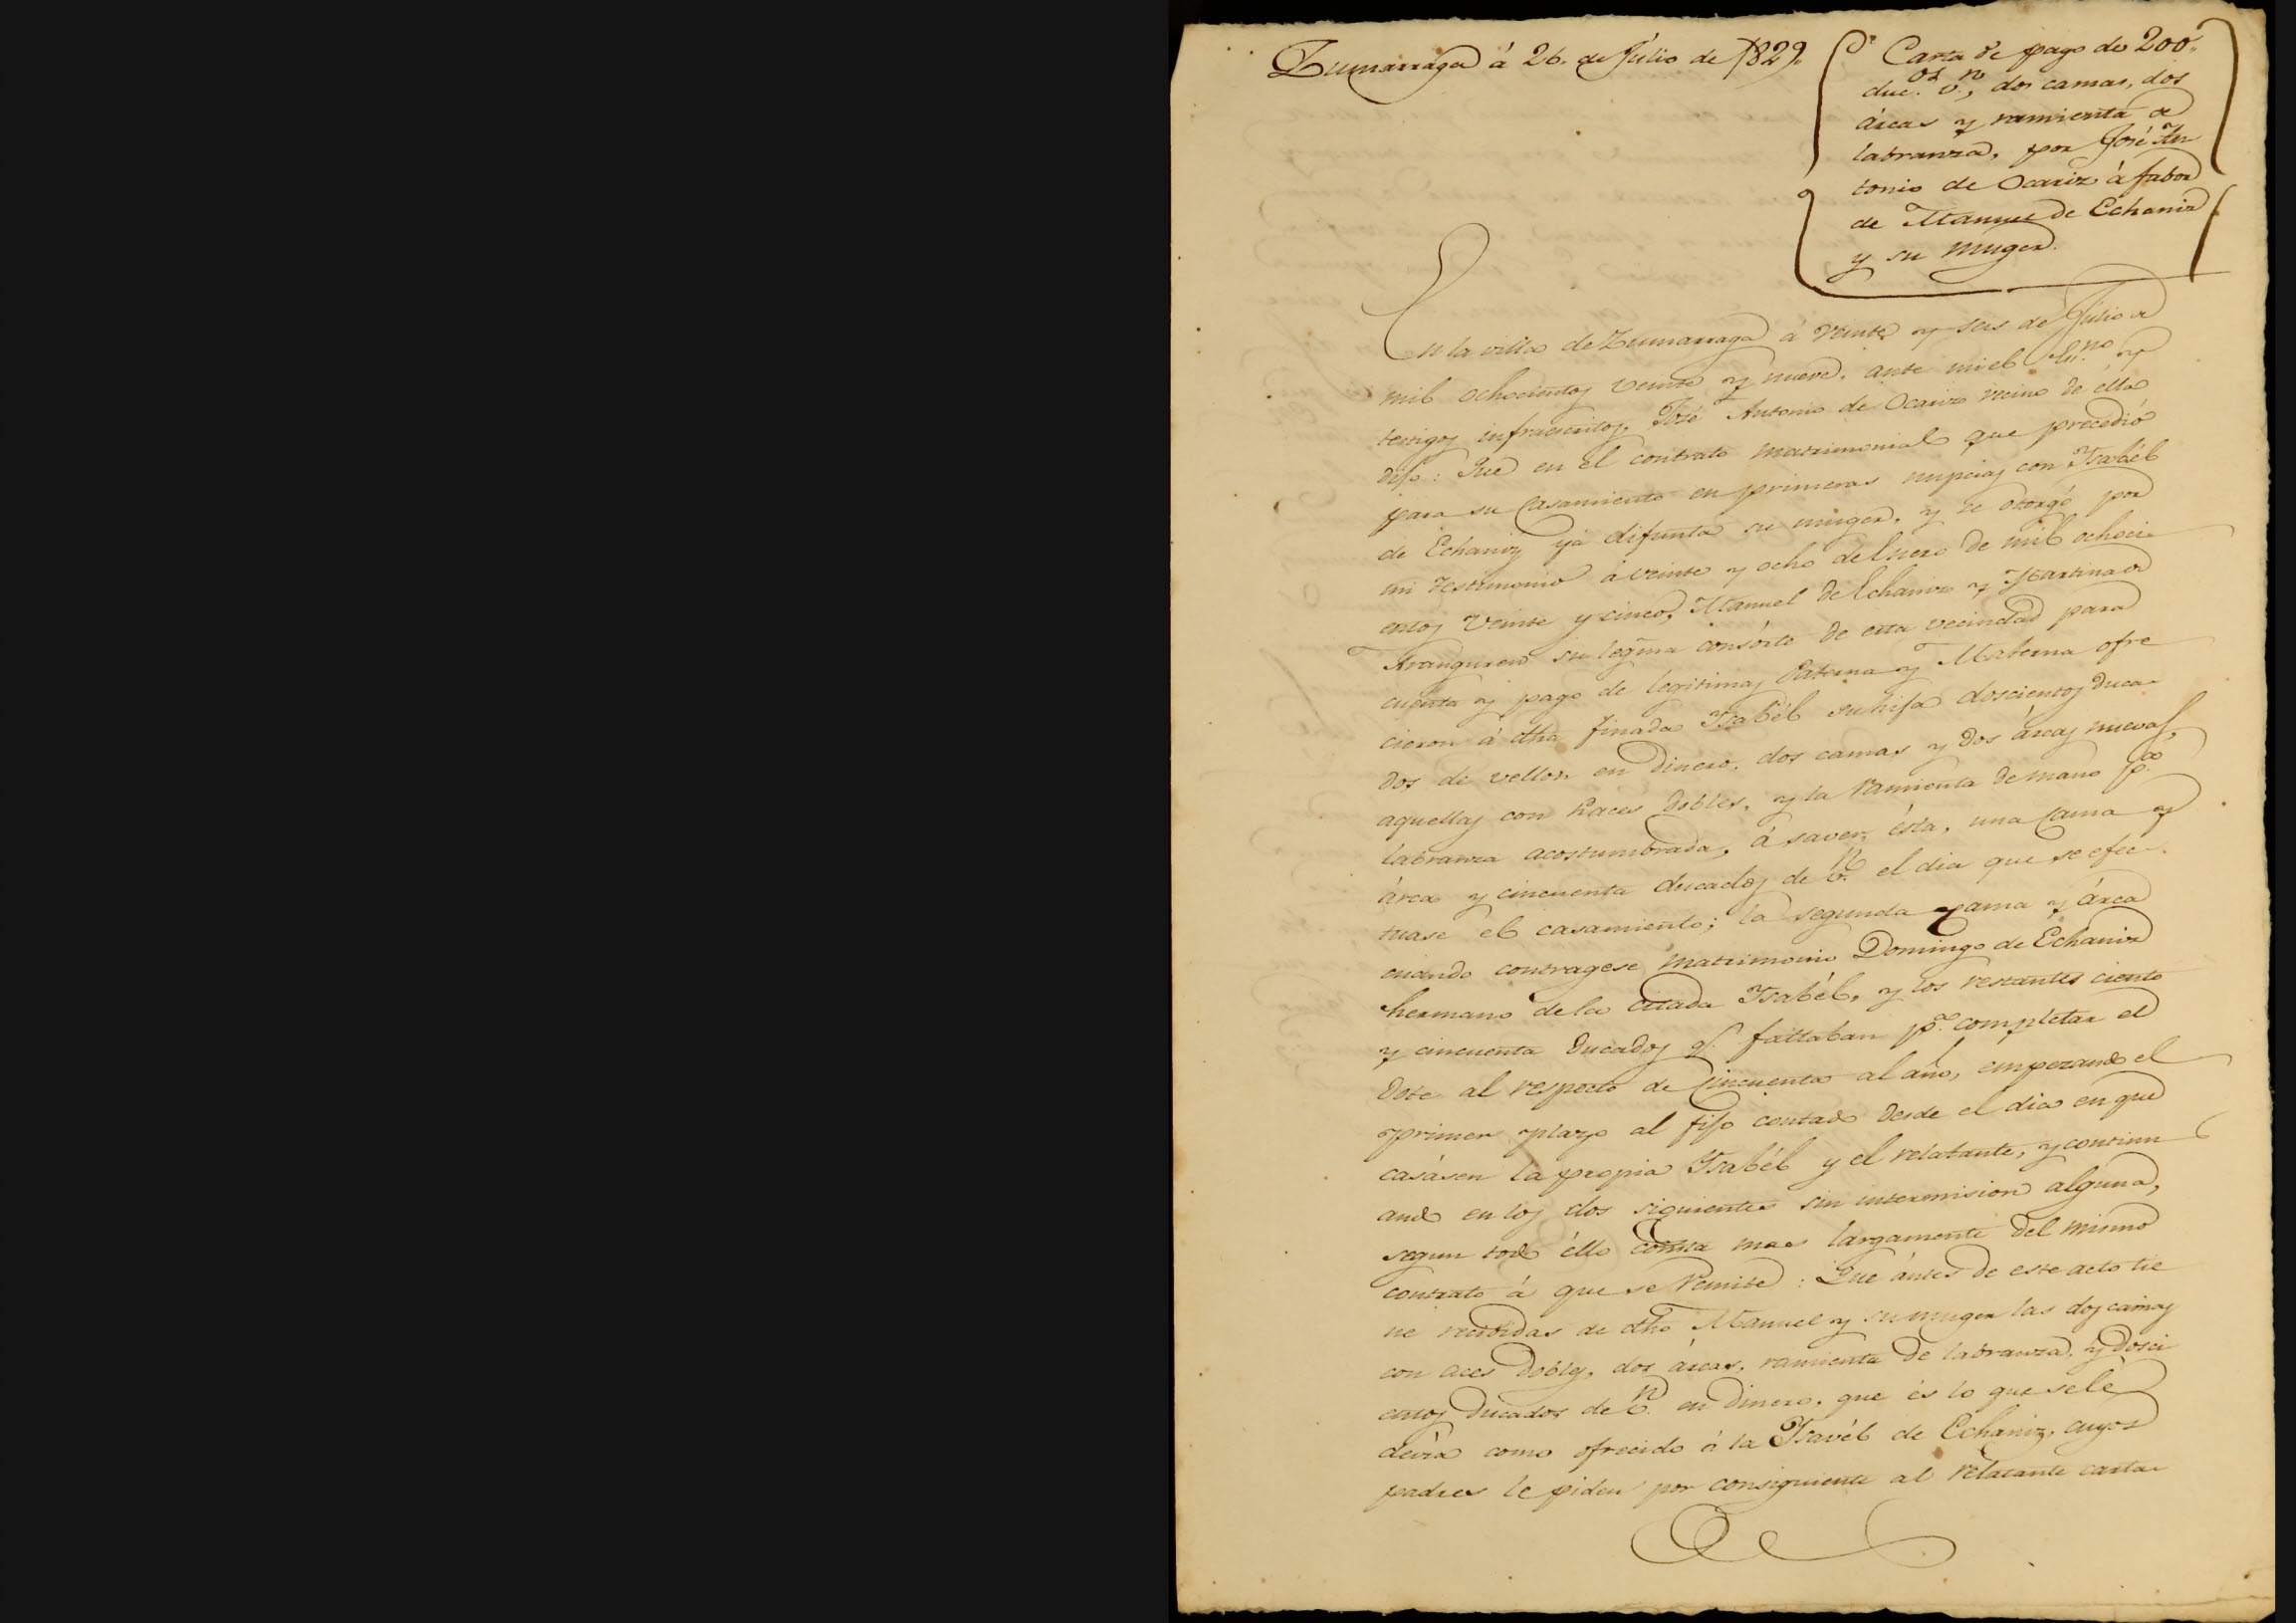 Zumarraga á 26. de Júlio de 1829.
Carta de pago de 200.
duc.os v.n, dos camas, dos
árcas y ramienta de
labranza, por José An
tonio de Ocariz á fabor
de Manuel de Echaniz
y su muger.
En la villa de Zumarraga á veinte y seis de Júlio de
mil ochocientos veinte y nueve, ante mi el Es.no y
testigos infraescritos, José Antonio de Ocariz vecino de élla
dijo: Que en el contrato matrimonial que precedió
para su casamiento en primeras nupcias con Ysabél
de Echaniz yá difunta su muger, y se otorgó por
mi testimonio á veinte y ocho de Enero de mil ochoci-
entos veinte y cinco, Manuel de Echaniz y Martina de
Aranguren su legma consórte de esta vecindad para
cuenta y pago de legitimas Paterna y Materna ofre
cieron á dha finada Ysabél su hija doscientos duca-
dos de vellon en dinero, dos camas y dos árcas nuevas,
aquellas con haces dobles, y la ramienta de mano p.a
labranza acostumbrada, á saver, ésta, una cama y
árca y cincuenta ducados de v.n el dia que se efec-
tuase el casamiento; la segunda cama y árca
cuando contragese matrimonio Domingo de Echaniz
hermano de la citada Ysabél, y los restantes ciento
y cincuenta ducados q.e faltaban p.a completar el
dote al respecto de cincuenta al año, empezando el
primer plazo al fijo contado desde el dia en que
casásen la propia Ysabél y el relatante, y continu
ando en los dos siguientes sin intermision alguna,
segun todo éllo consta mas largamente del mismo
contrato á que se remite: Que ántes de este acto tie
ne recividas de dho Manuel y su muger las dos camas
con aces dobles, dos árcas, ramienta de labranza, y dosci
entos ducados de v.n en dinero, que és lo que se le
devia como ofrecido á la Ysavél de Echaniz, cuyos
padres le piden por consiguiente al relatante carta